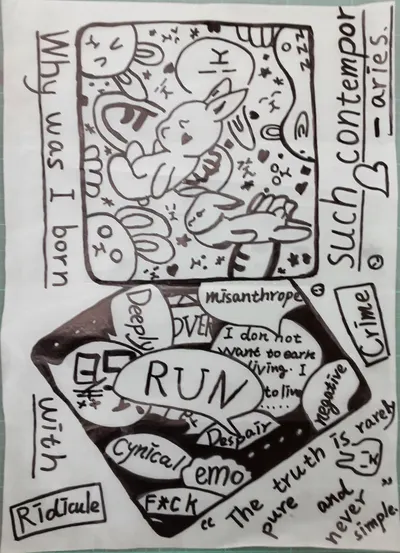 Why was I born
with
such contempor
-aries.
zzz
Crime
Ridicule
misanthrope
Deeply
OVER
I don not
want to earn
living. I
to live
......
RUN
negative
Despair
Cynical
emo
F*CK
"The truth is rarely
pure and
never
simple."